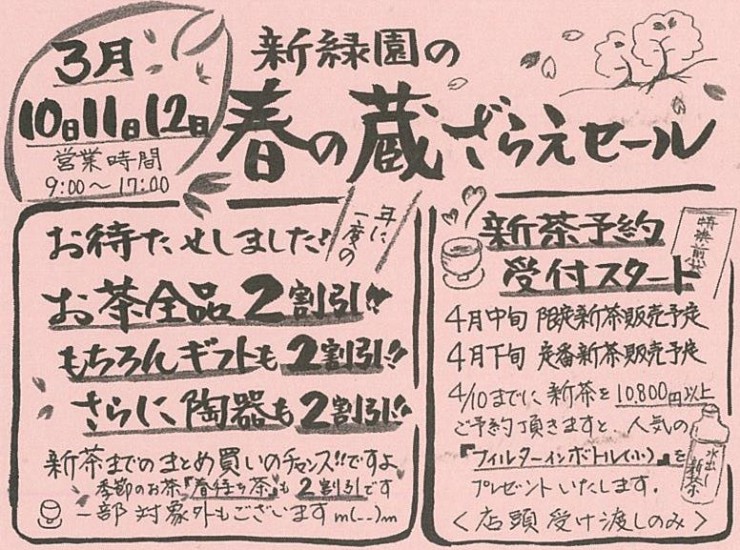 3月
10日11日12日
営業時間
9:00～17:00
新緑園の
春の蔵ざらえセール
年に
一度の
お待たせしました!!
お茶全品2割引!!
もちろんギフトも2割引!!
さらに陶器も2割引!!
新茶までのまとめ買いのチャンス!!ですよ
季節のお茶『春待ち茶』も2割引です
一部対象外もございますm(--)m
新茶予約
受付スタート
4月中旬 限定新茶販売予定
4月下旬 定番新茶販売予定
4/10までに新茶を10,800円以上
ご予約頂きますと、人気の
『フィルターインボトル(小)』を
プレゼントいたします.
<店頭受け渡しのみ>
水出し
新茶